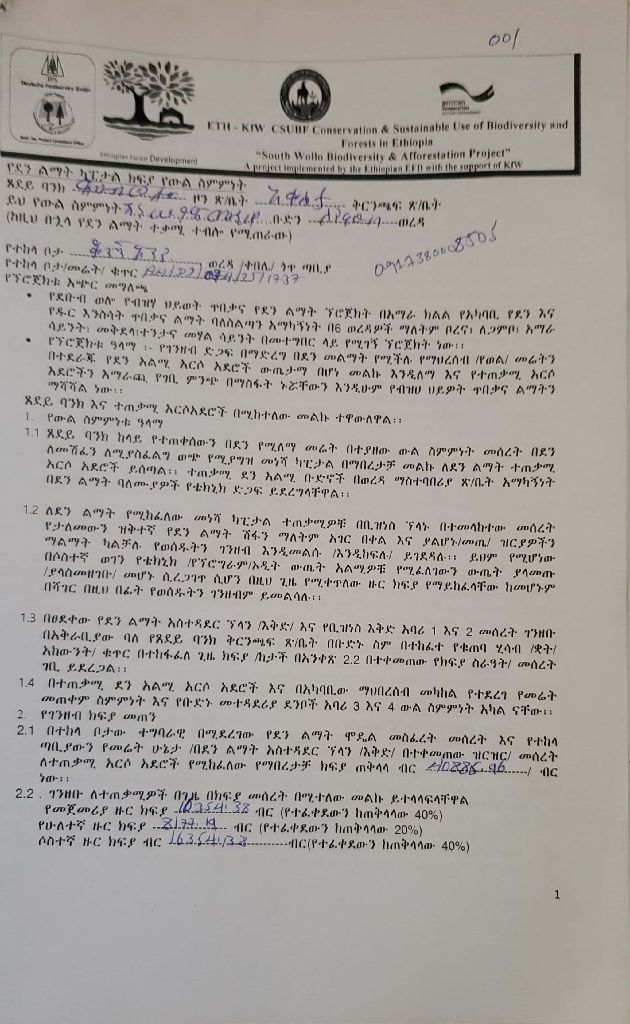 001
Deutsche Forstservice GmbH
Ethiopian Forest Development
german cooperation
ETH - KfW CSUBF Conservation & Sustainable Use of Biodiversity and
Forests in Ethiopia
"South Wollo Biodiversity & Afforestation Project"
A project implemented by the Ethiopian EFD with the support of KfW
የደን ልማት ካፒታል ክፍያ የውል ስምምነት
ጸደይ ባንክ ዞን ጽ/ቤት ቅርንጫፍ ጽ/ቤት
ይህ የውል ስምምነት ቡድን ወረዳ
(ከዚህ በኋላ የደን ልማት ተቃሚ ተብሎ የሚጠራው)
የተከላ ቦታ ወረዳ /ቀበሌ/ ንዑ ጣቢያ
የተከላ ቦታ/መሬት/ ቁጥር
የፕሮጀክቱ አጭር መግለጫ
• የደቡብ ወሎ የብዝሃ ህይወት ጥበቃና የደን ልማት ፕሮጀክት በአማራ ክልል የአካባቢ የደን እና
የዱር እንስሳት ጥበቃና ልማት ባለስልጣን አማካኝነት በ6 ወረዳዎች ማለትም ቦረና፣ ለጋምቦ፣ አማራ
ሳይንት፣ መቅደላ፣ተንታና መሃል ሳይንት በመተግበር ላይ የሚገኝ ፕሮጀክት ነው፡፡
• የፕሮጀክቱ ዓላማ ፡- የገንዘብ ድጋፍ በማድረግ በደን መልማት የሚችሉ የማህበረሰብ /የወል/ መሬትን
በተደራጁ የደን አልሚ አርሶ አደሮች ውጤታማ በሆነ መልኩ እንዲለማ እና የተጠቃሚ አርሶ
አደሮችን አማራጪ የገቢ ምንጭ በማስፋት ኑሯቸውን እንዲሁም የብዝሀ ህይዎት ጥበቃና ልማትን
ማሻሻል ነው፡፡
ጸደይ ባንክ እና ተጠቃሚ አርሶአደሮች በሚከተለው መልኩ ተዋውለዋል፡፡
1. የውል ስምምነቱ ዓላማ
1.1 ጸደይ ባንክ ከላይ የተጠቀሰውን በደን የሚለማ መሬት በተያዘው ውል ስምምነት መሰረት በደን
ለመሸፈን ለሚያስፈልግ ወጭ የሚያግዝ መነሻ ካፒታል በማበረታቻ መልኩ ለደን ልማት ተጠቃሚ
አርሶ አደሮች ይሰጣል፡፡ ተጠቃሚ ደን አልሚ ቡድኖች በወረዳ ማስተባበሪያ ጽ/ቤት አማካኝነት
በደን ልማት ባለሙያዎች የቴክኒክ ድጋፍ ይደረግላቸዋል፡፡
1.2 ለደን ልማት የሚከፈለው መነሻ ካፒታል ተጠቃሚዎቹ በቢዝነስ ፕላኑ በተመላከተው መሰረት
የታለመውን ዝቅተኛ የደን ልማት ሽፋን ማለትም አገር በቀል እና ያልሆኑ/መጤ/ ዝርያዎችን
ማልማት ካልቻሉ የወሰዱትን ገንዘብ እንዲመልሱ /እንዲከፍሉ/ ይገደዳሉ፡፡ ይህም የሚሆነው
በሶስተኛ ወገን የቴክኒክ /የፕሮግራም/አዲት ውጤት አልሚዎቹ የሚፈለገውን ውጤት ያላመጡ
/ያላስመዘገቡ/ መሆኑ ሲረጋገጥ ሲሆን በዚህ ጊዜ የሚቀጥለው ዙር ክፍያ የማይከፈላቸው ከመሆኑም
በሻገር በዚህ በፊት የወሰዱትን ገንዘብም ይመልሳሉ፡፡
1.3 በፀደቀው የደን ልማት አስተዳደር ፕላን /እቅድ/ እና የቢዝነስ እቅድ አባሪ 1 እና 2 መሰረት ገንዘቡ
በአቅራቢያው ባለ የጸደይ ባንክ ቅርንጫፍ ጽ/ቤት በቡድኑ ስም በተከፈተ የቁጠባ ሂሳብ /ቋት/
አካውንት/ ቁጥር በተከፋፈለ ጊዜ ክፍያ /ከታች በአንቀጽ 2.2 በተቀመጠው የክፍያ ስራዓት/ መሰረት
ገቢ ይደረጋል፡፡
1.4 በተጠቃሚ ደን አልሚ አርሶ አደሮች እና በአካባቢው ማህበረሰብ መካከል የተደረገ የመሬት
መጠቀም ስምምነት እና የቡድኑ መተዳደሪያ ደንቦች አባሪ 3 እና 4 ውል ስምምነት አካል ናቸው፡፡
2. የገንዘብ ክፍያ መጠን
2.1 በተከላ ቦታው ተግባራዊ በሚደረገው የደን ልማት ሞዴል መስፈረት መሰረት እና የተከላ
ጣቢያውን የመሬት ሁኔታ /በደን ልማት አስተዳደር ፕላን /እቅድ/ በተቀመጠው ዝርዝር/ መሰረት
ለተጠቃሚ አርሶ አደሮች የሚከፈለው የማበረታቻ ክፍያ ጠቅላላ ብር 40886.96 / ብር
ነው፡፡
2.2 . ገንዘቡ ለተጠቃሚዎች በጊዜ በክፍያ መሰረት በሚተለው መልኩ ይተላላፍላቸዋል
የመጀመሪያ ዙር ክፍያ ብር (የተፈቀደውን ከጠቅላላው 40%)
የሁለተኛ ዙር ክፍያ ብር (የተፈቀደውን ከጠቅላላው 20%)
ሶስተኛ ዙር ክፍያ ብር ብር(የተፈቀደውን ከጠቅላላው 40%)
1